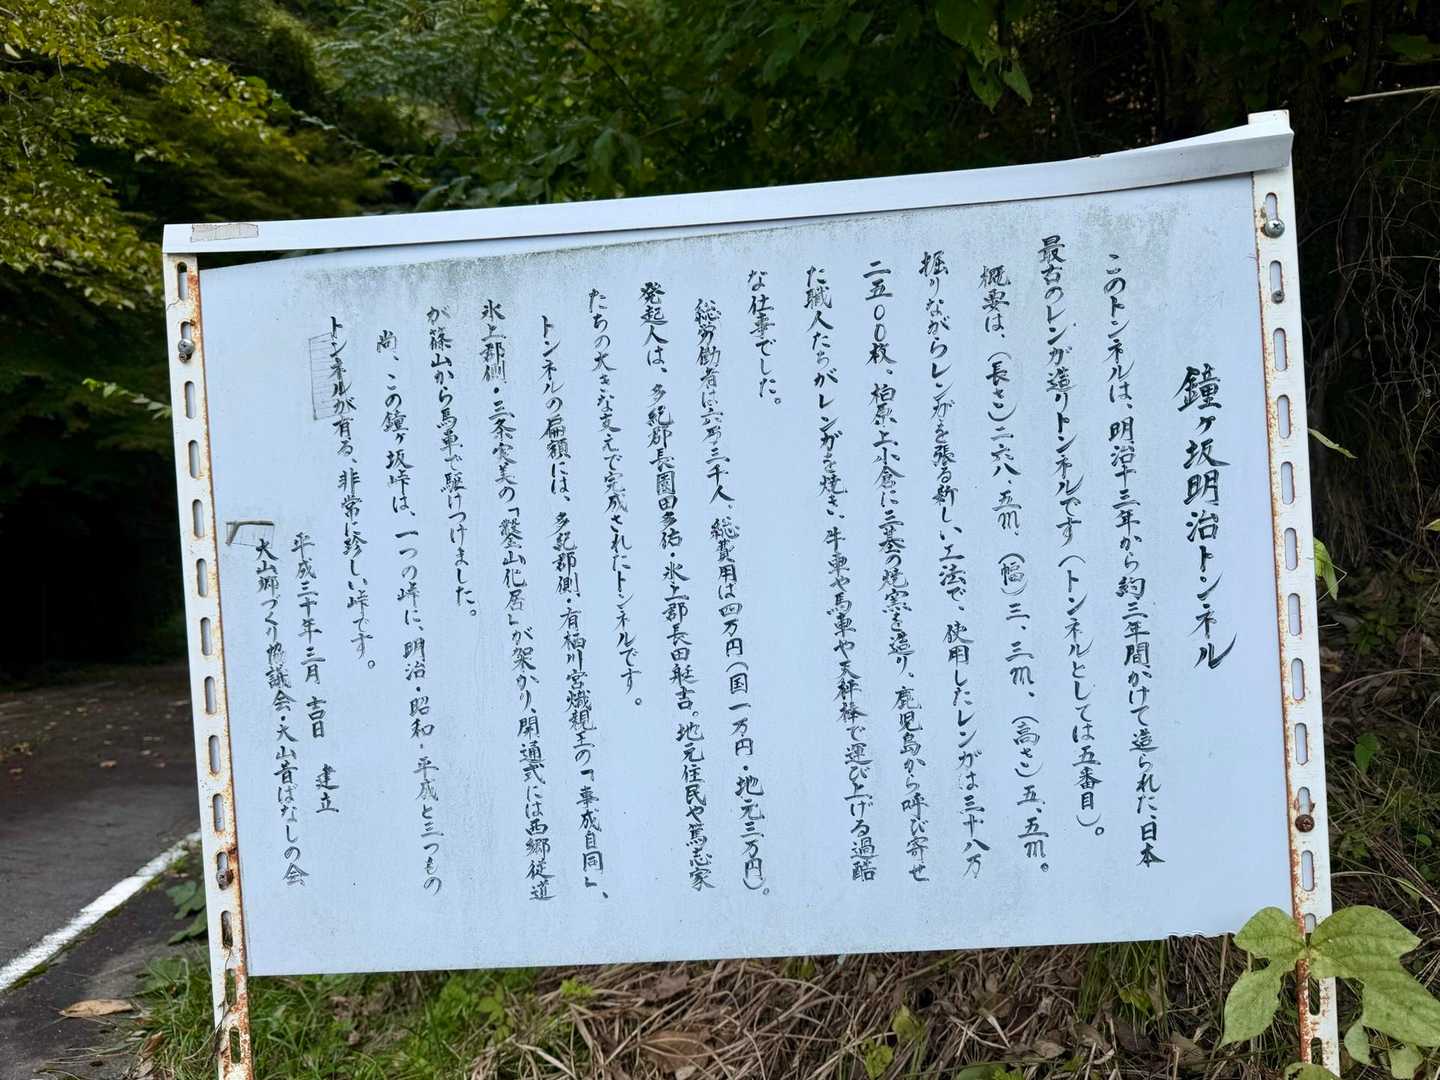 鐘ヶ坂明治トンネル
このトンネルは、明治十三年から約三年間かけて造られた、日本
最古のレンガ造りトンネルです（トンネルとしては五番目）。
概要は、（長さ）二六八、五m、（幅）三、三m、（高さ）五、五m。
掘りながらレンガを張る新しい工法で、使用したレンガは三十八万
二五〇〇枚、柏原上小倉に三基の焼窯を造り、鹿児島から呼び寄せ
た職人たちがレンガを焼き、牛車や馬車や天秤棒で運び上げる過酷
な仕事でした。
総労働者は六万三千人、総費用は四万円（国一万円・地元三万円）。
発起人は、多紀郡長園田多祐・氷上郡長田艇吉。地元住民や篤志家
たちの大きな支えで完成されたトンネルです。
トンネルの扁額には、多紀郡側・有栖川宮熾親王の「事成自同」、
氷上郡側・三条実美の「鑿山化居」が架かり、開通式には西郷従道
が篠山から馬車で駆けつけました。
尚、この鐘ヶ坂峠は、一つの峠に、明治・昭和・平成と三つもの
トンネルが有る、非常に珍しい峠です。
平成三十年三月 吉日 建立
大山郷づくり協議会・大山昔ばなしの会